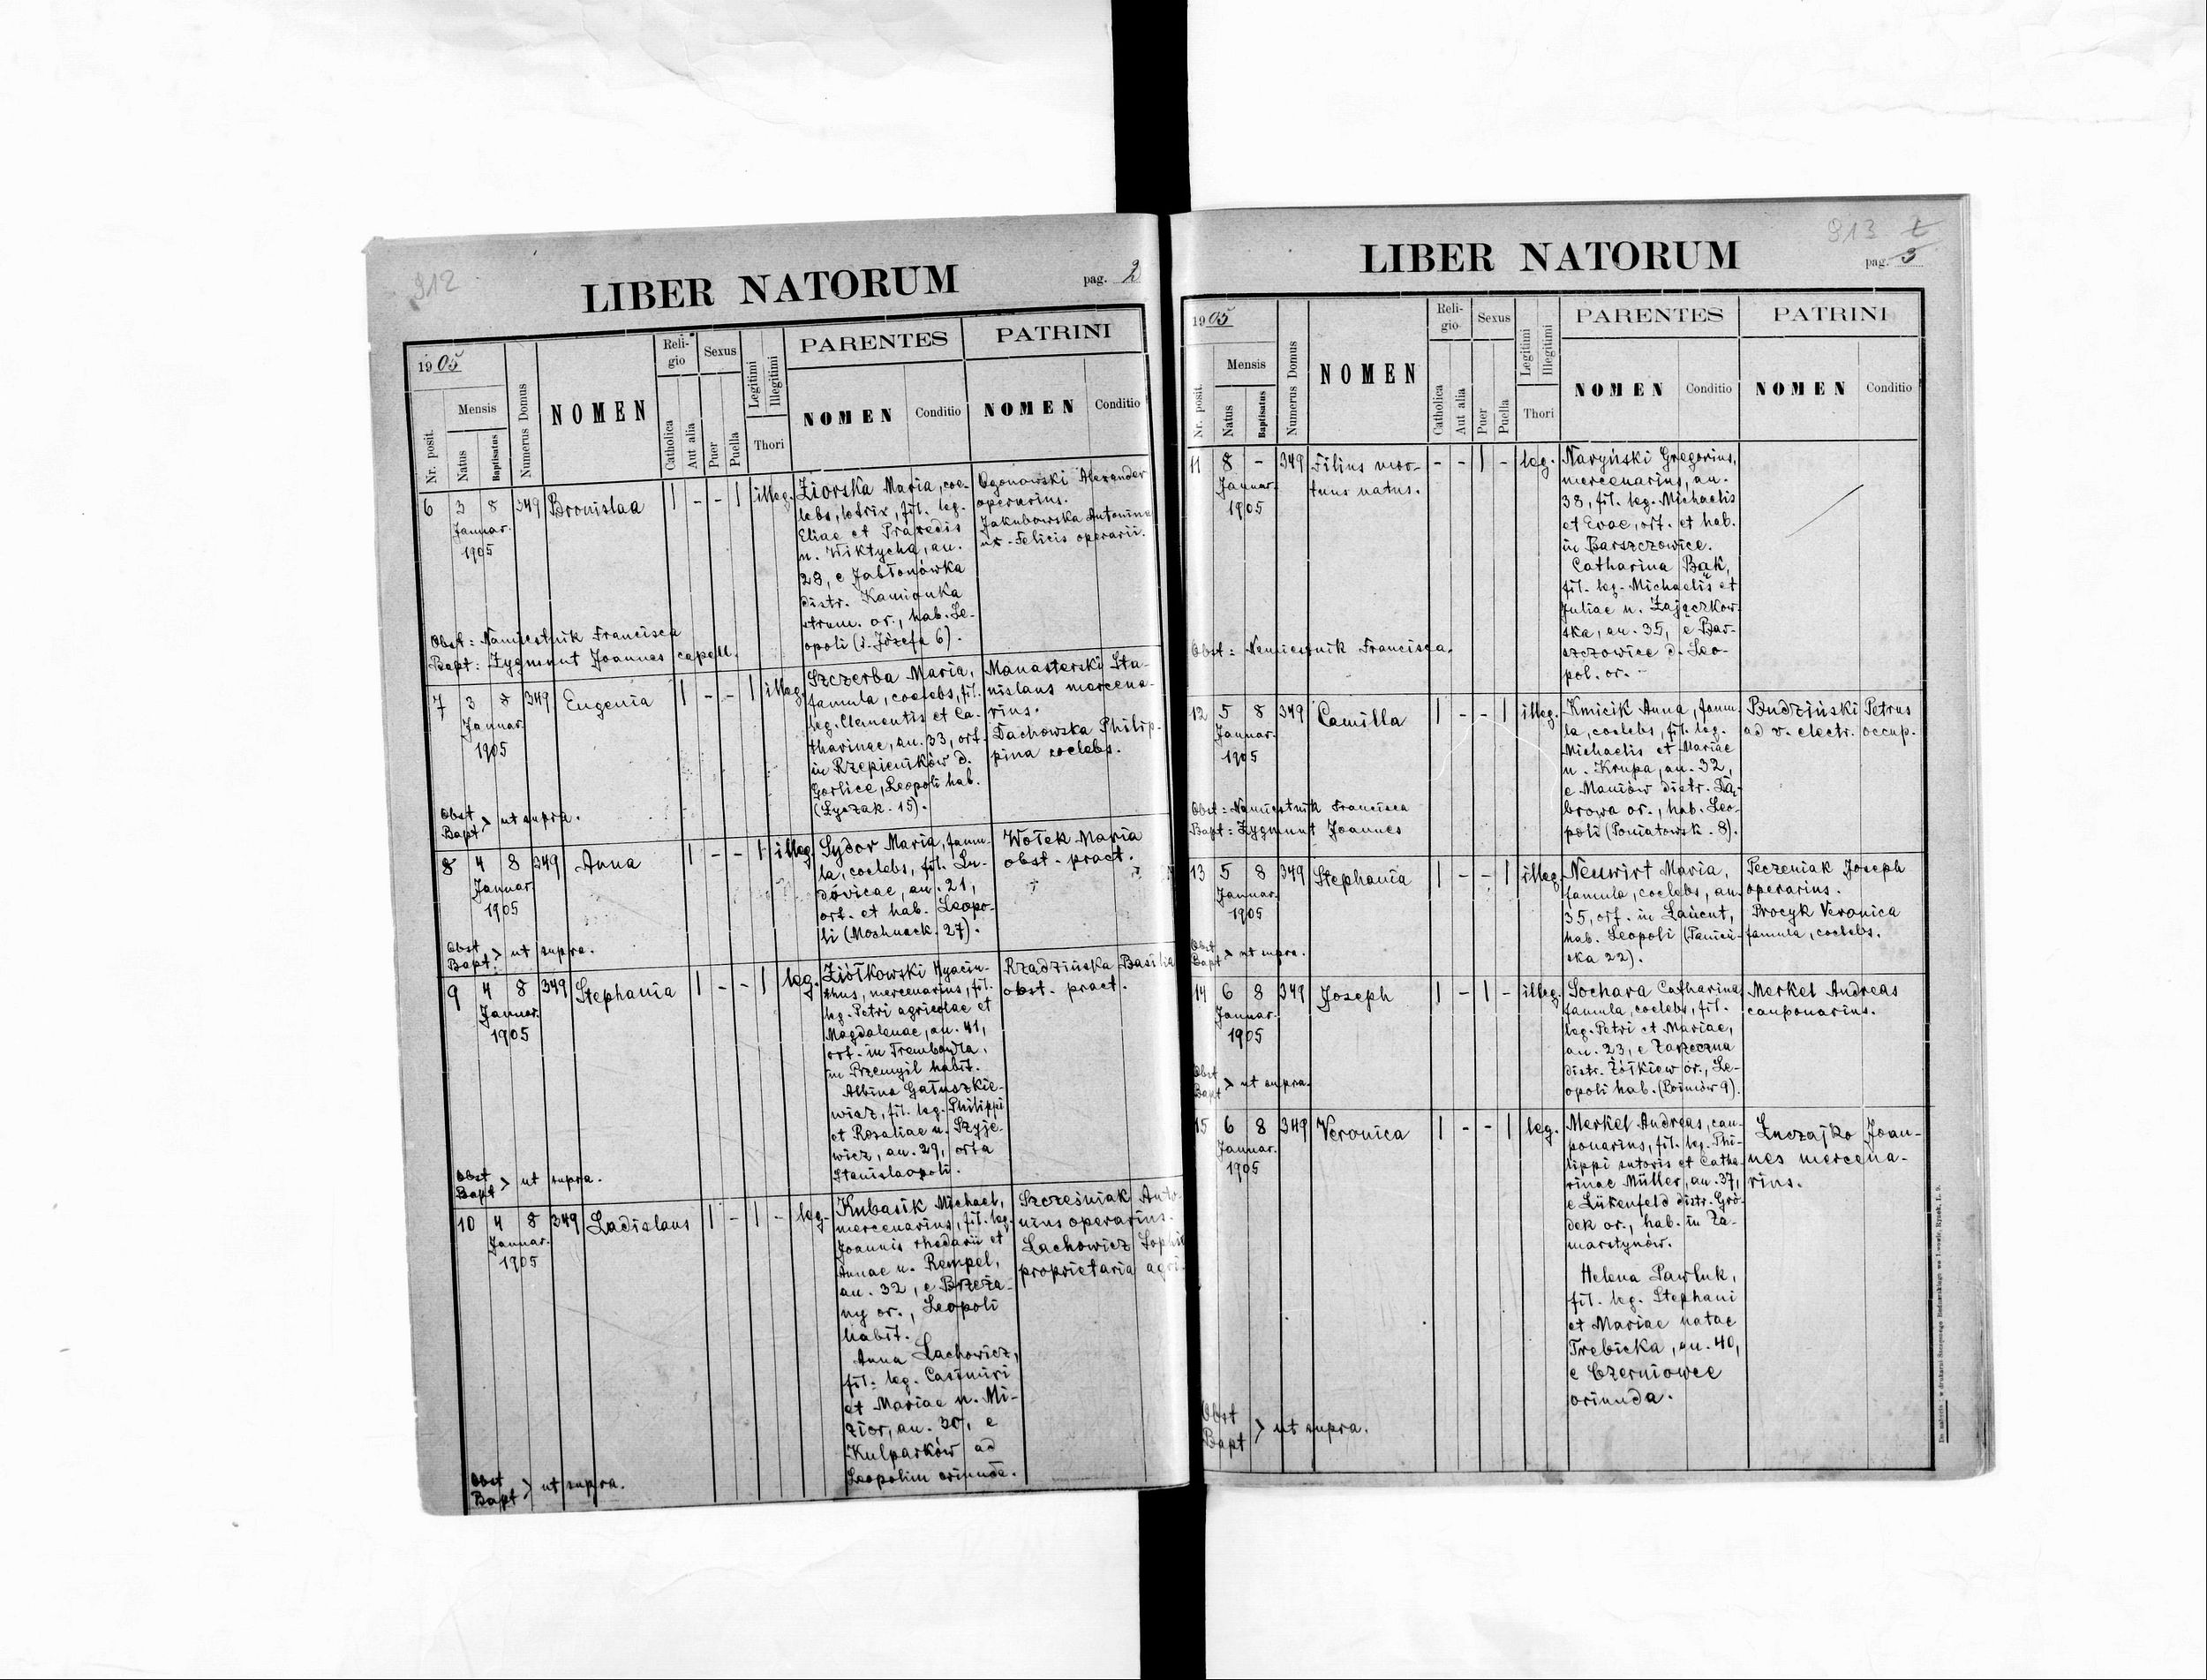 912
LIBER NATORUM
pag. 2
1905
Nr. posit.
Mensis
Natus
Baptisatus
Numerus Domus
NOMEN
Reli-
gio
Catholica
Aut alia
Sexus
Puer
Puella
Legitimi
Illegitimi
Thori
PARENTES
NOMEN
Conditio
PATRINI
NOMEN
Conditio
6 3 8 349 Bronislaa | - - | illeg.
Januar.
1905
Ziorska Maria, coe-
lebs, lotrix, fil. leg.
Eliae et Praxedis
n. Wiktycha, an.
28, e Jabłonówka
distr. Kamionka
strum. or., hab. Le-
opoli (s. Józefa 6).
Ogonowski Alexander
operarius.
Jakubowska Antonina
ux. Felicis operarii.
Obst: Namiestnik Francisca
Bapt: Zygmunt Joannes capell.
7 3 8 349 Eugenia | - - | illeg.
Januar.
1905
Szczerba Maria,
famula, coelebs, fil.
leg. Clementis et Ca-
tharinae, an. 33, ort.
in Rzepieników d.
Gorlice, Leopoli hab.
(Łyczak. 15).
Manasterski Sta-
nislaus mercena-
rius.
Dachowska Philip-
pina coelebs.
Obst
Bapt > ut supra.
8 4 8 349 Anna | - - | illeg.
Januar.
1905
Sydor Maria, famu-
la, coelebs, fil. Lu-
dovicae, an. 21,
ort. et hab. Leopo-
li (Mochnack. 27).
Wołek Maria
obst. pract.
Obst
Bapt. > ut supra.
9 4 8 349 Stephania | - - | leg.
Januar.
1905
Ziółkowski Hyacin-
thus, mercenarius, fil.
leg. Petri agricolae et
Magdalenae, an. 41,
ort. in Trembowla,
in Przemyśl habit.
Albina Gałuszkie-
wicz, fil. leg. Philippi
et Rosaliae n. Szyje-
wicz, an. 29, orta
Stanislaopoli.
Rzadzińska Basilia
obst. pract.
Obst
Bapt > ut supra.
10 4 8 349 Ladislaus | - | - leg.
Januar.
1905
Kubasik Michael,
mercenarius, fil. leg.
Joannis rhedarii et
Annae n. Rempel,
an. 32, e Brzeża-
ny or., Leopoli
habit.
Anna Lachowicz,
fil. leg. Casimiri
et Mariae n. Mi-
zior, an. 30, e
Kulparków ad
Leopolim oriunda.
Szcześniak Anto-
nius operarius.
Lachowicz Sophia
proprietaria agri.
Obst
Bapt > ut supra.
913
LIBER NATORUM
pag. 3
1905
Nr. posit.
Mensis
Natus
Baptisatus
Numerus Domus
NOMEN
Reli-
gio
Catholica
Aut alia
Sexus
Puer
Puella
Legitimi
Illegitimi
Thori
PARENTES
NOMEN
Conditio
PATRINI
NOMEN
Conditio
11 8 - 349 Filius mor- - - | - leg.
Januar. tuus natus.
1905
Naryński Gregorius,
mercenarius, an.
38, fil. leg. Michaelis
et Evae, ort. et hab.
in Barszczowice.
Catharina Bąk,
fil. leg. Michaelis et
Juliae n. Zajączkow-
ska, an. 35, e Bar-
szczowice d. Leo-
pol. or. -
Obst: Namiestnik Francisca.
12 5 8 349 Camilla | - - | illeg.
Januar.
1905
Kmicik Anna, famu-
la, coelebs, fil. leg.
Michaelis et Mariae
n. Krupa, an. 32,
e Maniów distr. Dą-
browa or., hab. Leo-
poli (Poniatowsk. 8).
Budziński Petrus
ad v. electr. occup.
Obst: Namiestnik Francisca
Bapt: Zygmunt Joannes
13 5 8 349 Stephania | - - | illeg.
Januar.
1905
Neuwirt Maria,
famula, coelebs, an.
35, ort. in Łańcut,
hab. Leopoli (Panień-
ska 22).
Peczeniak Joseph
operarius.
Procyk Veronica
famula, coelebs.
Obst
Bapt > ut supra.
14 6 8 349 Joseph | - | - illeg.
Januar.
1905
Sochara Catharina,
famula, coelebs, fil.
leg. Petri et Mariae,
an. 23, e Zarzeczna
distr. Żółkiew or., Le-
opoli hab. (Boimów 9).
Merkel Andreas
cauponarius.
Obst
Bapt > ut supra.
15 6 8 349 Veronica | - - | leg.
Januar.
1905
Merkel Andreas, cau-
ponarius, fil. leg. Phi-
lippi sutoris et Catha-
rinae Müller, an. 37,
e Lükenfeld distr. Gró-
dek or., hab. in Za-
marstynów.
Helena Pawluk,
fil. leg. Stephani
et Mariae natae
Trebicka, an. 40,
e Czerniowce
oriunda.
Łuczajko Joan-
nes mercena-
rius.
Obst
Bapt > ut supra.